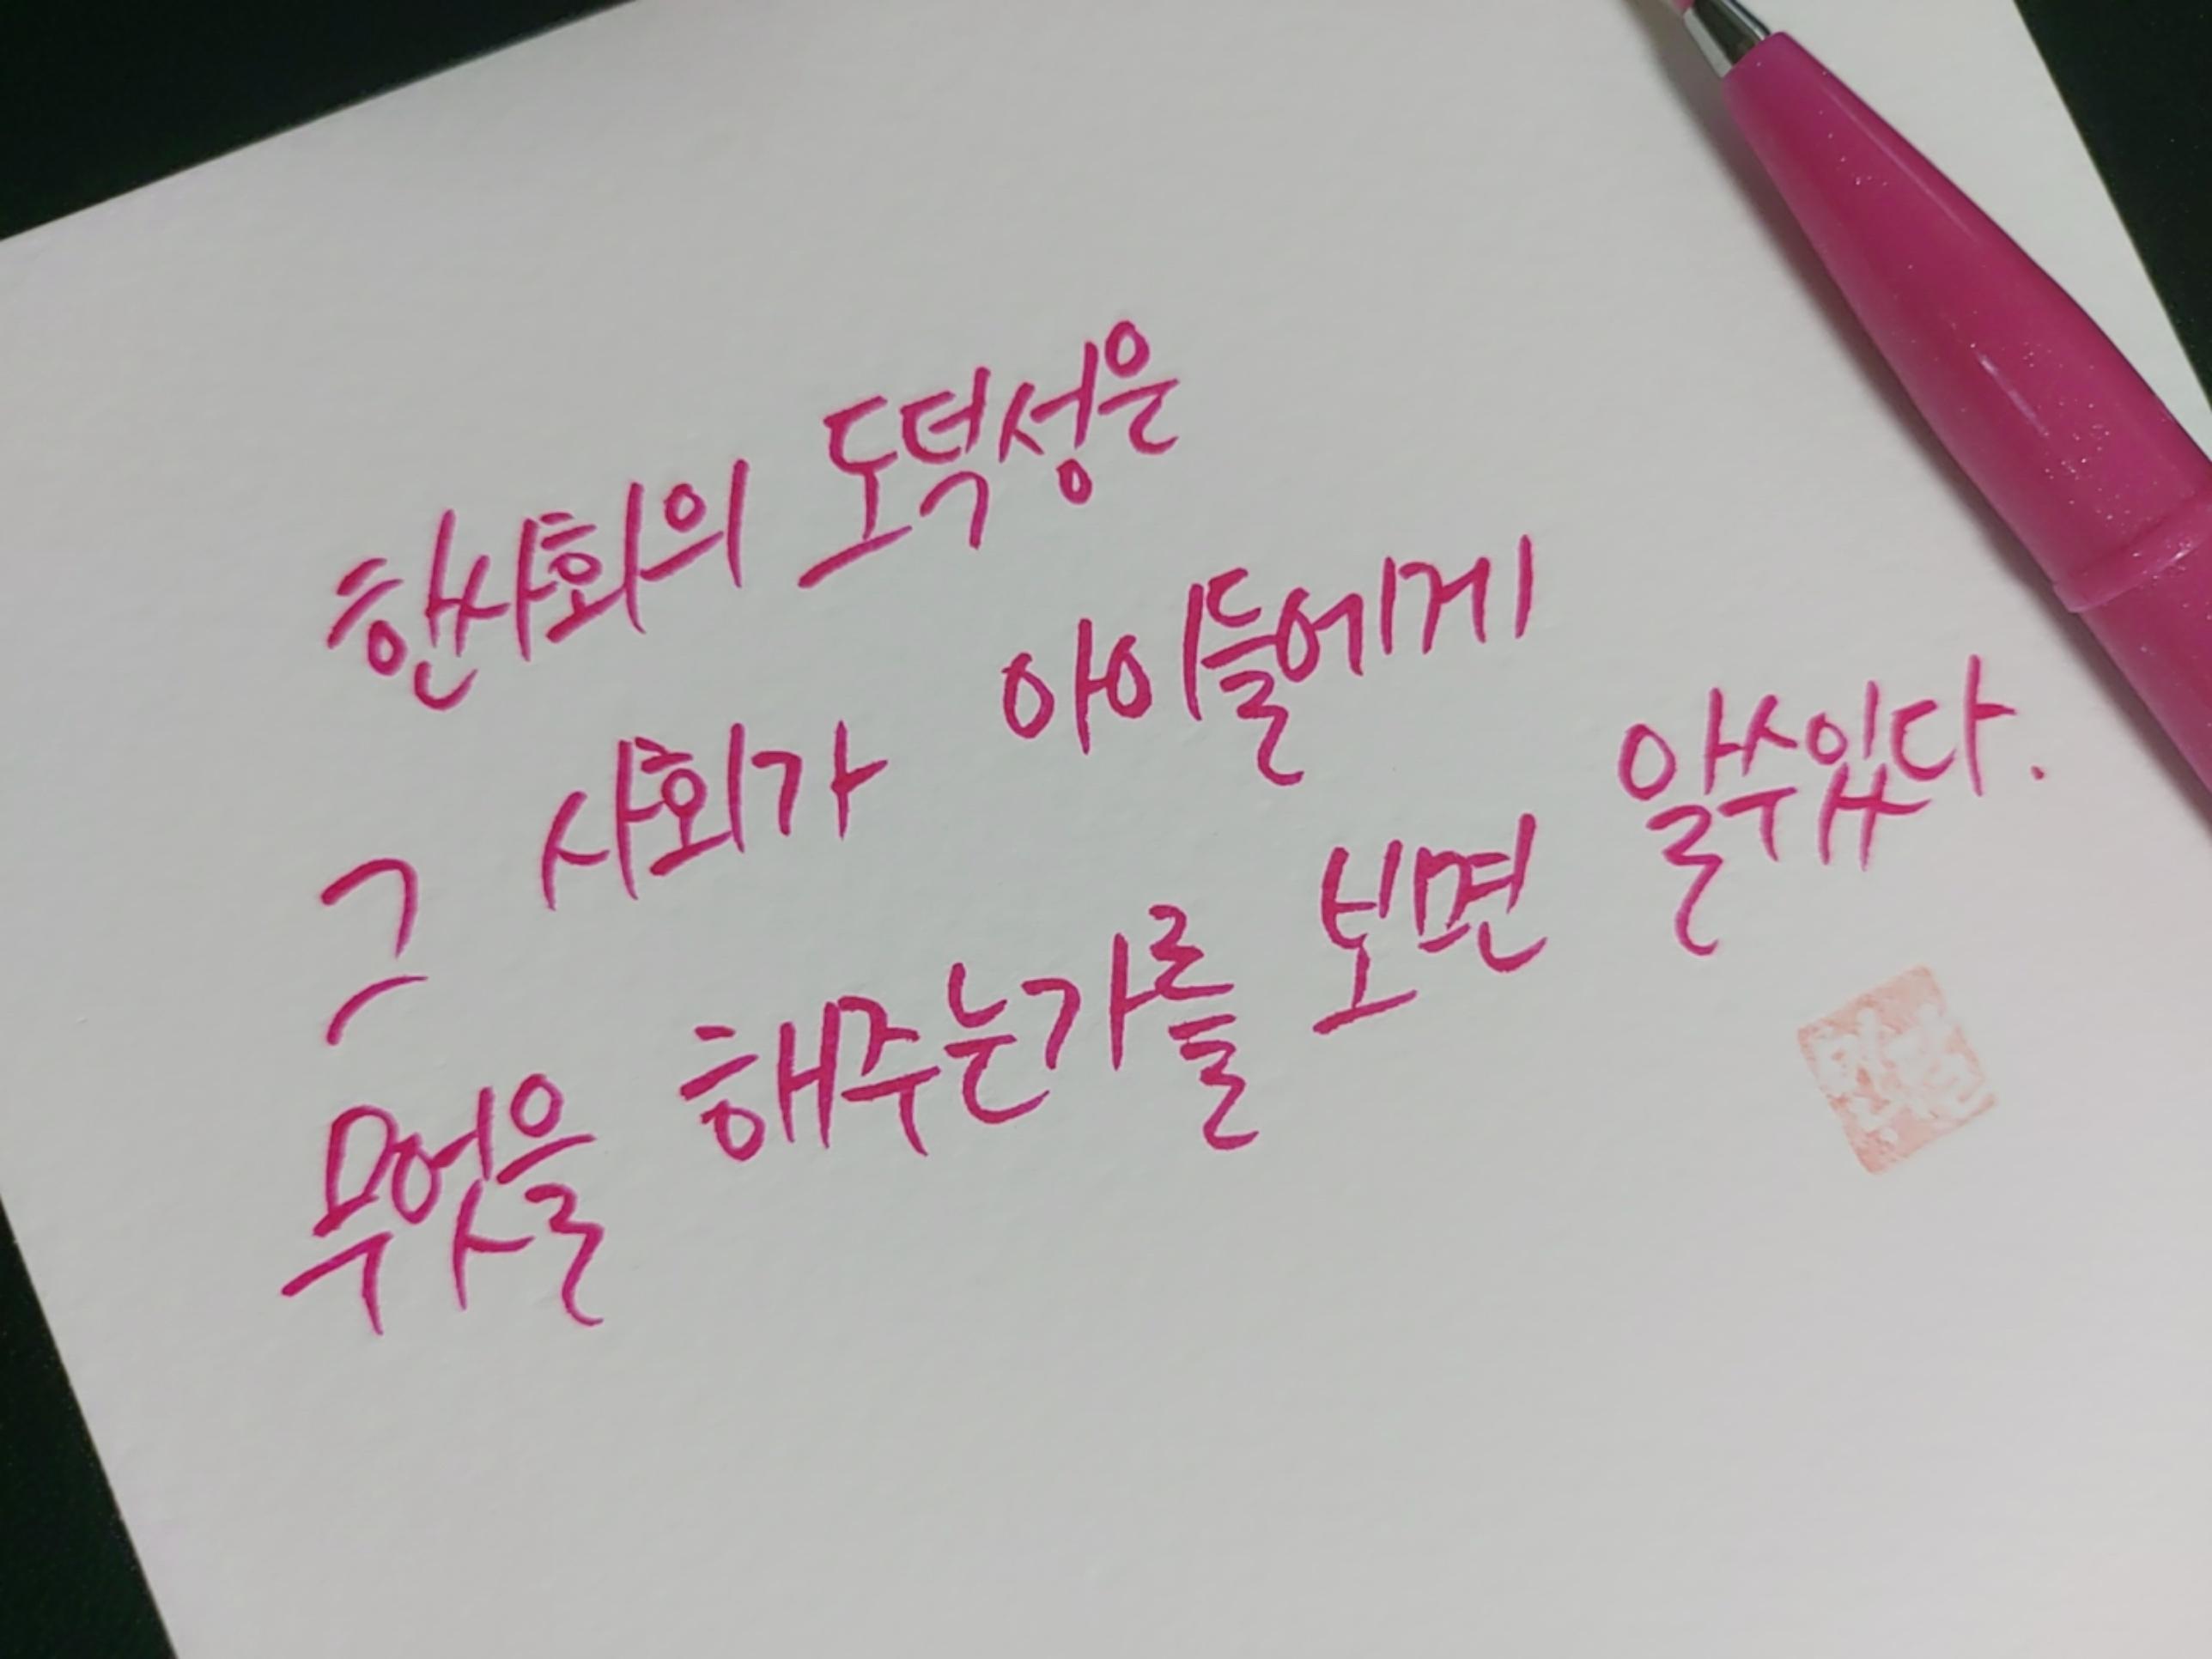 한사회의 도덕성은
그 사회가 아이들에게
무엇을 해주는가를 보면 알수있다.